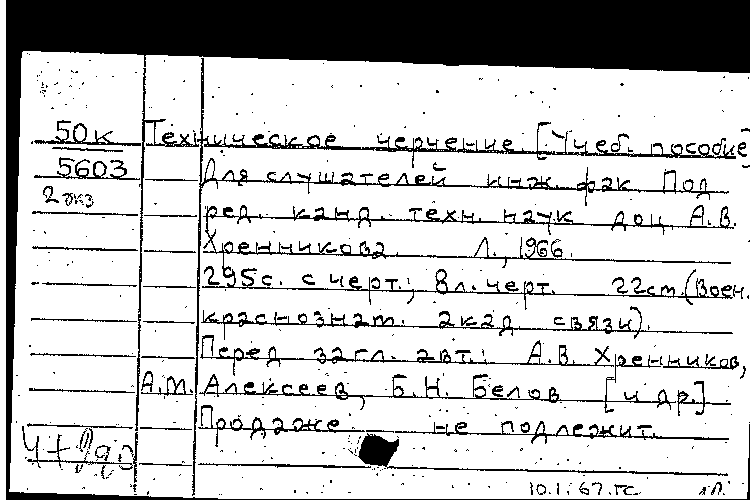 50к Техническое черчение. [Учеб. пособие]
5603 Для слушателей инж. фак. Под
2 экз ред. канд. техн. наук доц. А.В.
Хренникова. Л., 1966.
295с. с черт.; 8л. черт. 22см. (Воен.
краснознам. акад. связи).
Перед загл. авт.: А.В. Хренников,
А.М. Алексеев, Б.Н. Белов [и др.]
Продаже не подлежит.
10.1.67.ГС